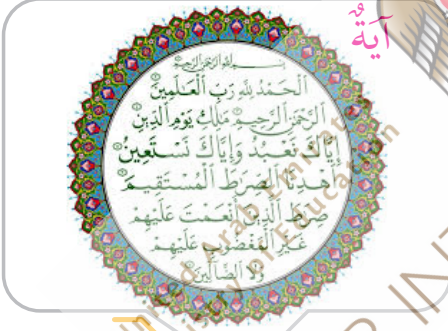 آيَةٌ
بِسْمِ اللَّهِ الرَّحْمَنِ الرَّحِيمِ
الْحَمْدُ لِلَّهِ رَبِّ الْعَلَمِينَ
الرَّحْمَنِ الرَّحِيمِ مَلِكِ يَوْمِ الدِّينِ
إِيَّاكَ نَعْبُدُ وَإِيَّاكَ نَسْتَعِينُ
اهْدِنَا الصِّرَطَ الْمُسْتَقِيمَ
صِرَطَ الَّذِينَ أَنْعَمْتَ عَلَيْهِمْ
غَيْرِ الْمَغْضُوبِ عَلَيْهِمْ
وَلَا الضَّالِّينَ
United Arab Emirates
of Education